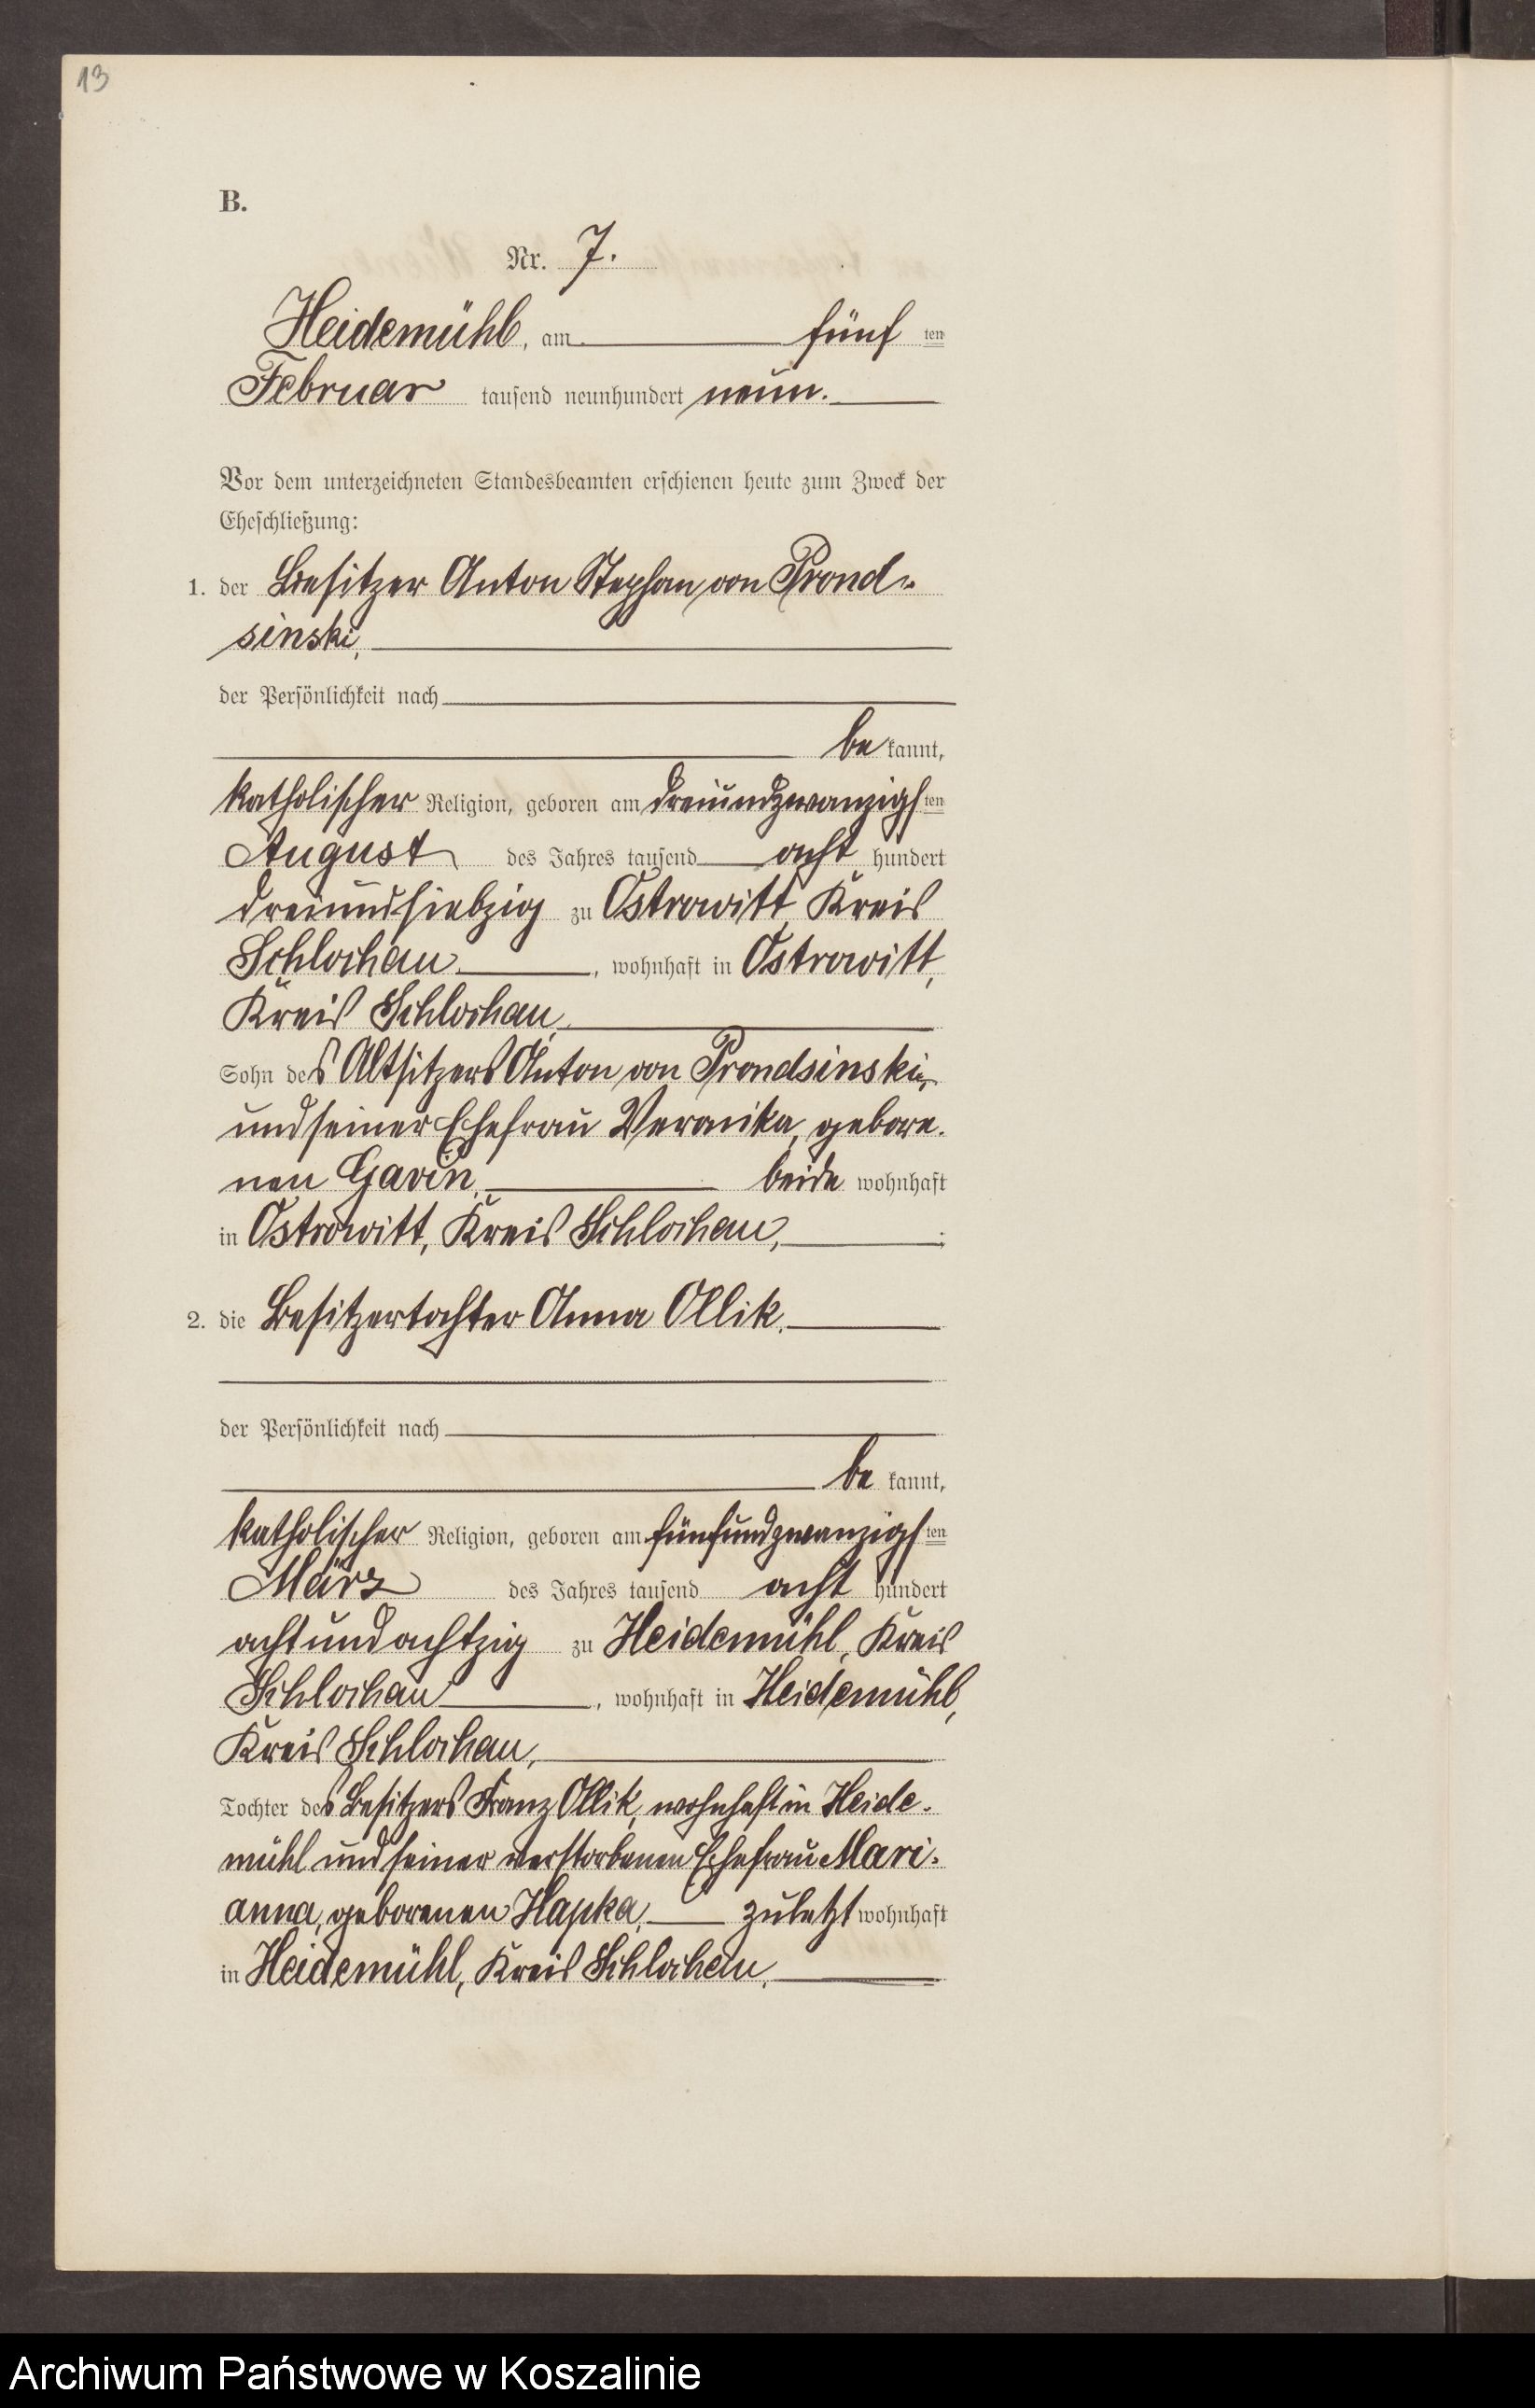 13
B.
Nr. 7.
Heidemühl, am fünf ten
Februar tausend neunhundert neun.
Vor dem unterzeichneten Standesbeamten erschienen heute zum Zweck der
Eheschließung:
1. der Besitzer Anton Stephan von Prond=
sinski,
der Persönlichkeit nach
be kannt,
katholischer Religion, geboren am dreiundzwanzigs ten
August des Jahres tausend acht hundert
dreiundsiebzig zu Ostrowitt, Kreis
Schlochau, wohnhaft in Ostrowitt,
Kreis Schlochau,
Sohn des Altsitzers Anton von Prondsinski,
und seiner Ehefrau Veronika, gebore-
nen Gavin, beide wohnhaft
in Ostrowitt, Kreis Schlochau, ;
2. die Besitzertochter Anna Ollik,
der Persönlichkeit nach
be kannt,
katholischer Religion, geboren am fünfundzwanzigs ten
März des Jahres tausend acht hundert
achtundachtzig zu Heidemühl, Kreis
Schlochau, wohnhaft in Heidemühl,
Kreis Schlochau,
Tochter des Besitzers Franz Ollik, wohnhaft in Heide-
mühl und seiner verstorbenen Ehefrau Mari-
anna, geborenen Hapka, zuletzt wohnhaft
in Heidemühl, Kreis Schlochau,
Archiwum Państwowe w Koszalinie